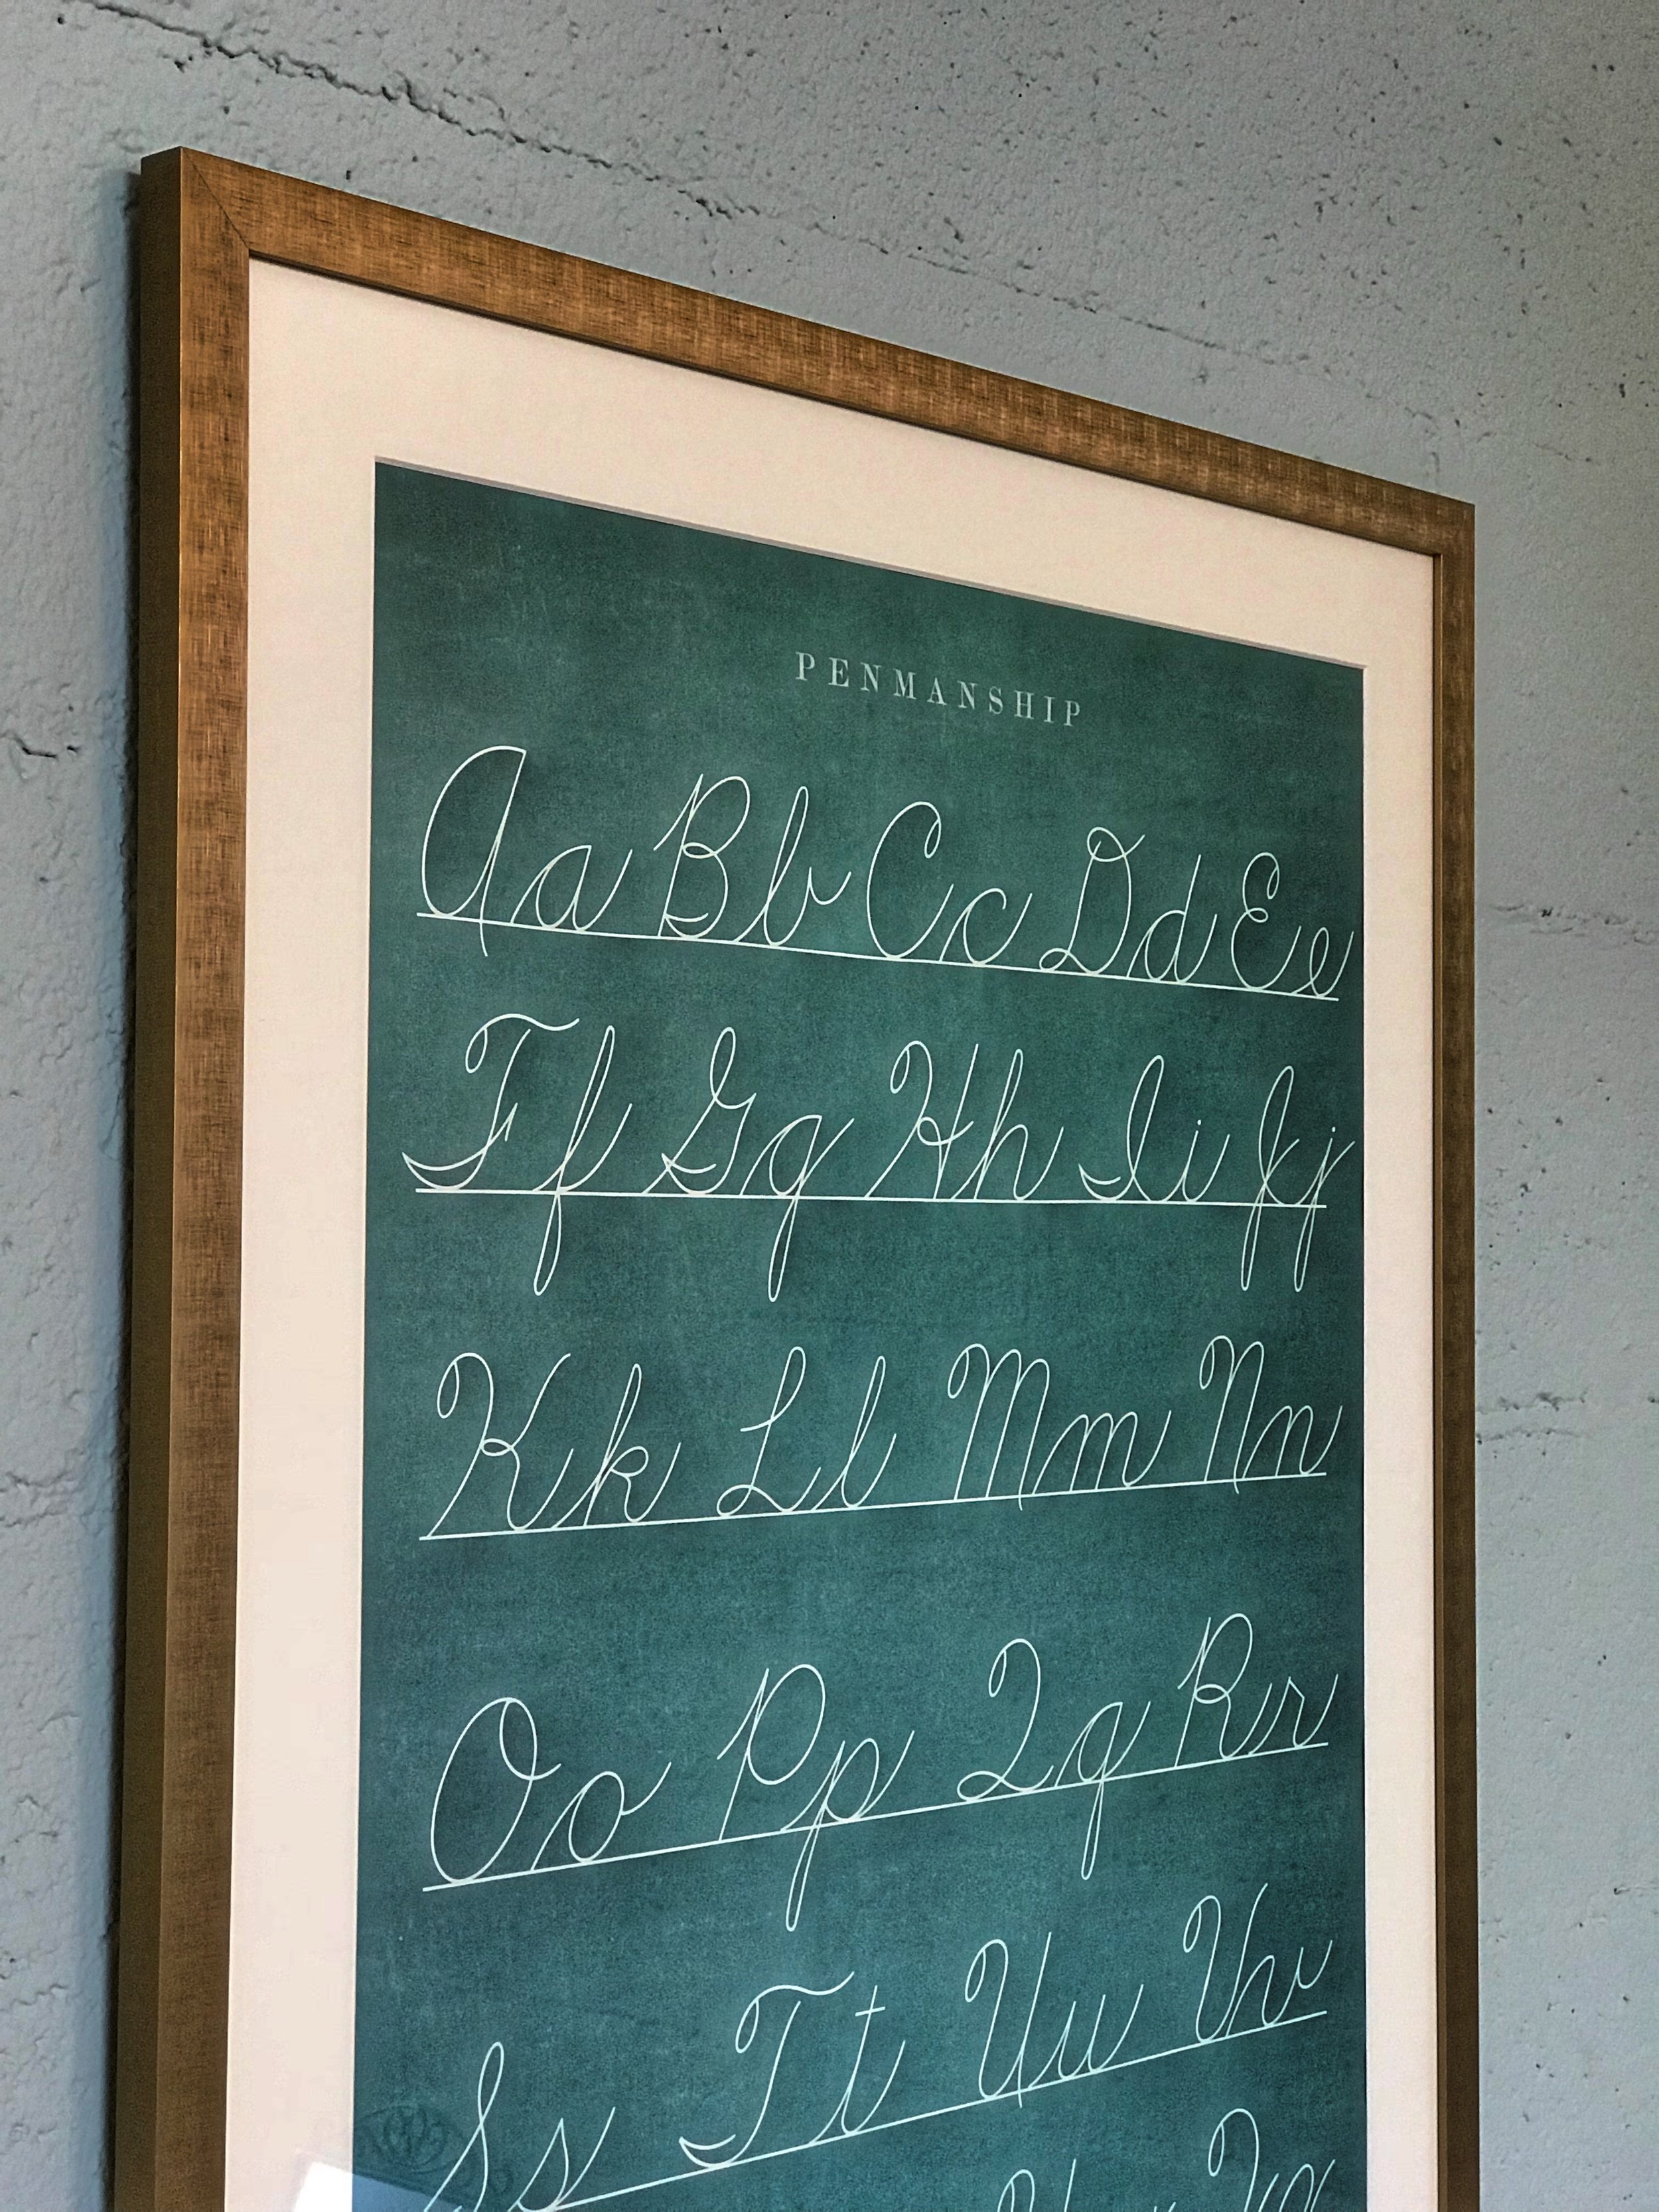 PENMANSHIP
Aa Bb Cc Dd Ee
Ff Gg Hh Ii Jj
Kk Ll Mm Nn
Oo Pp Qq Rr
Ss Tt Uu Vv